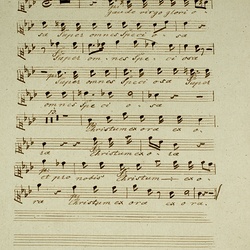 gaude virgo glori o
sa Super omnes speci o sa
Super om nes Spe ci osa
Super omnes speci osa Super
omnes Spe ci o sa
Christum ex ora ex o.
ra Christum ex o ra
et pro nobis Christum ex o
ra Christum ex ora ex ora.